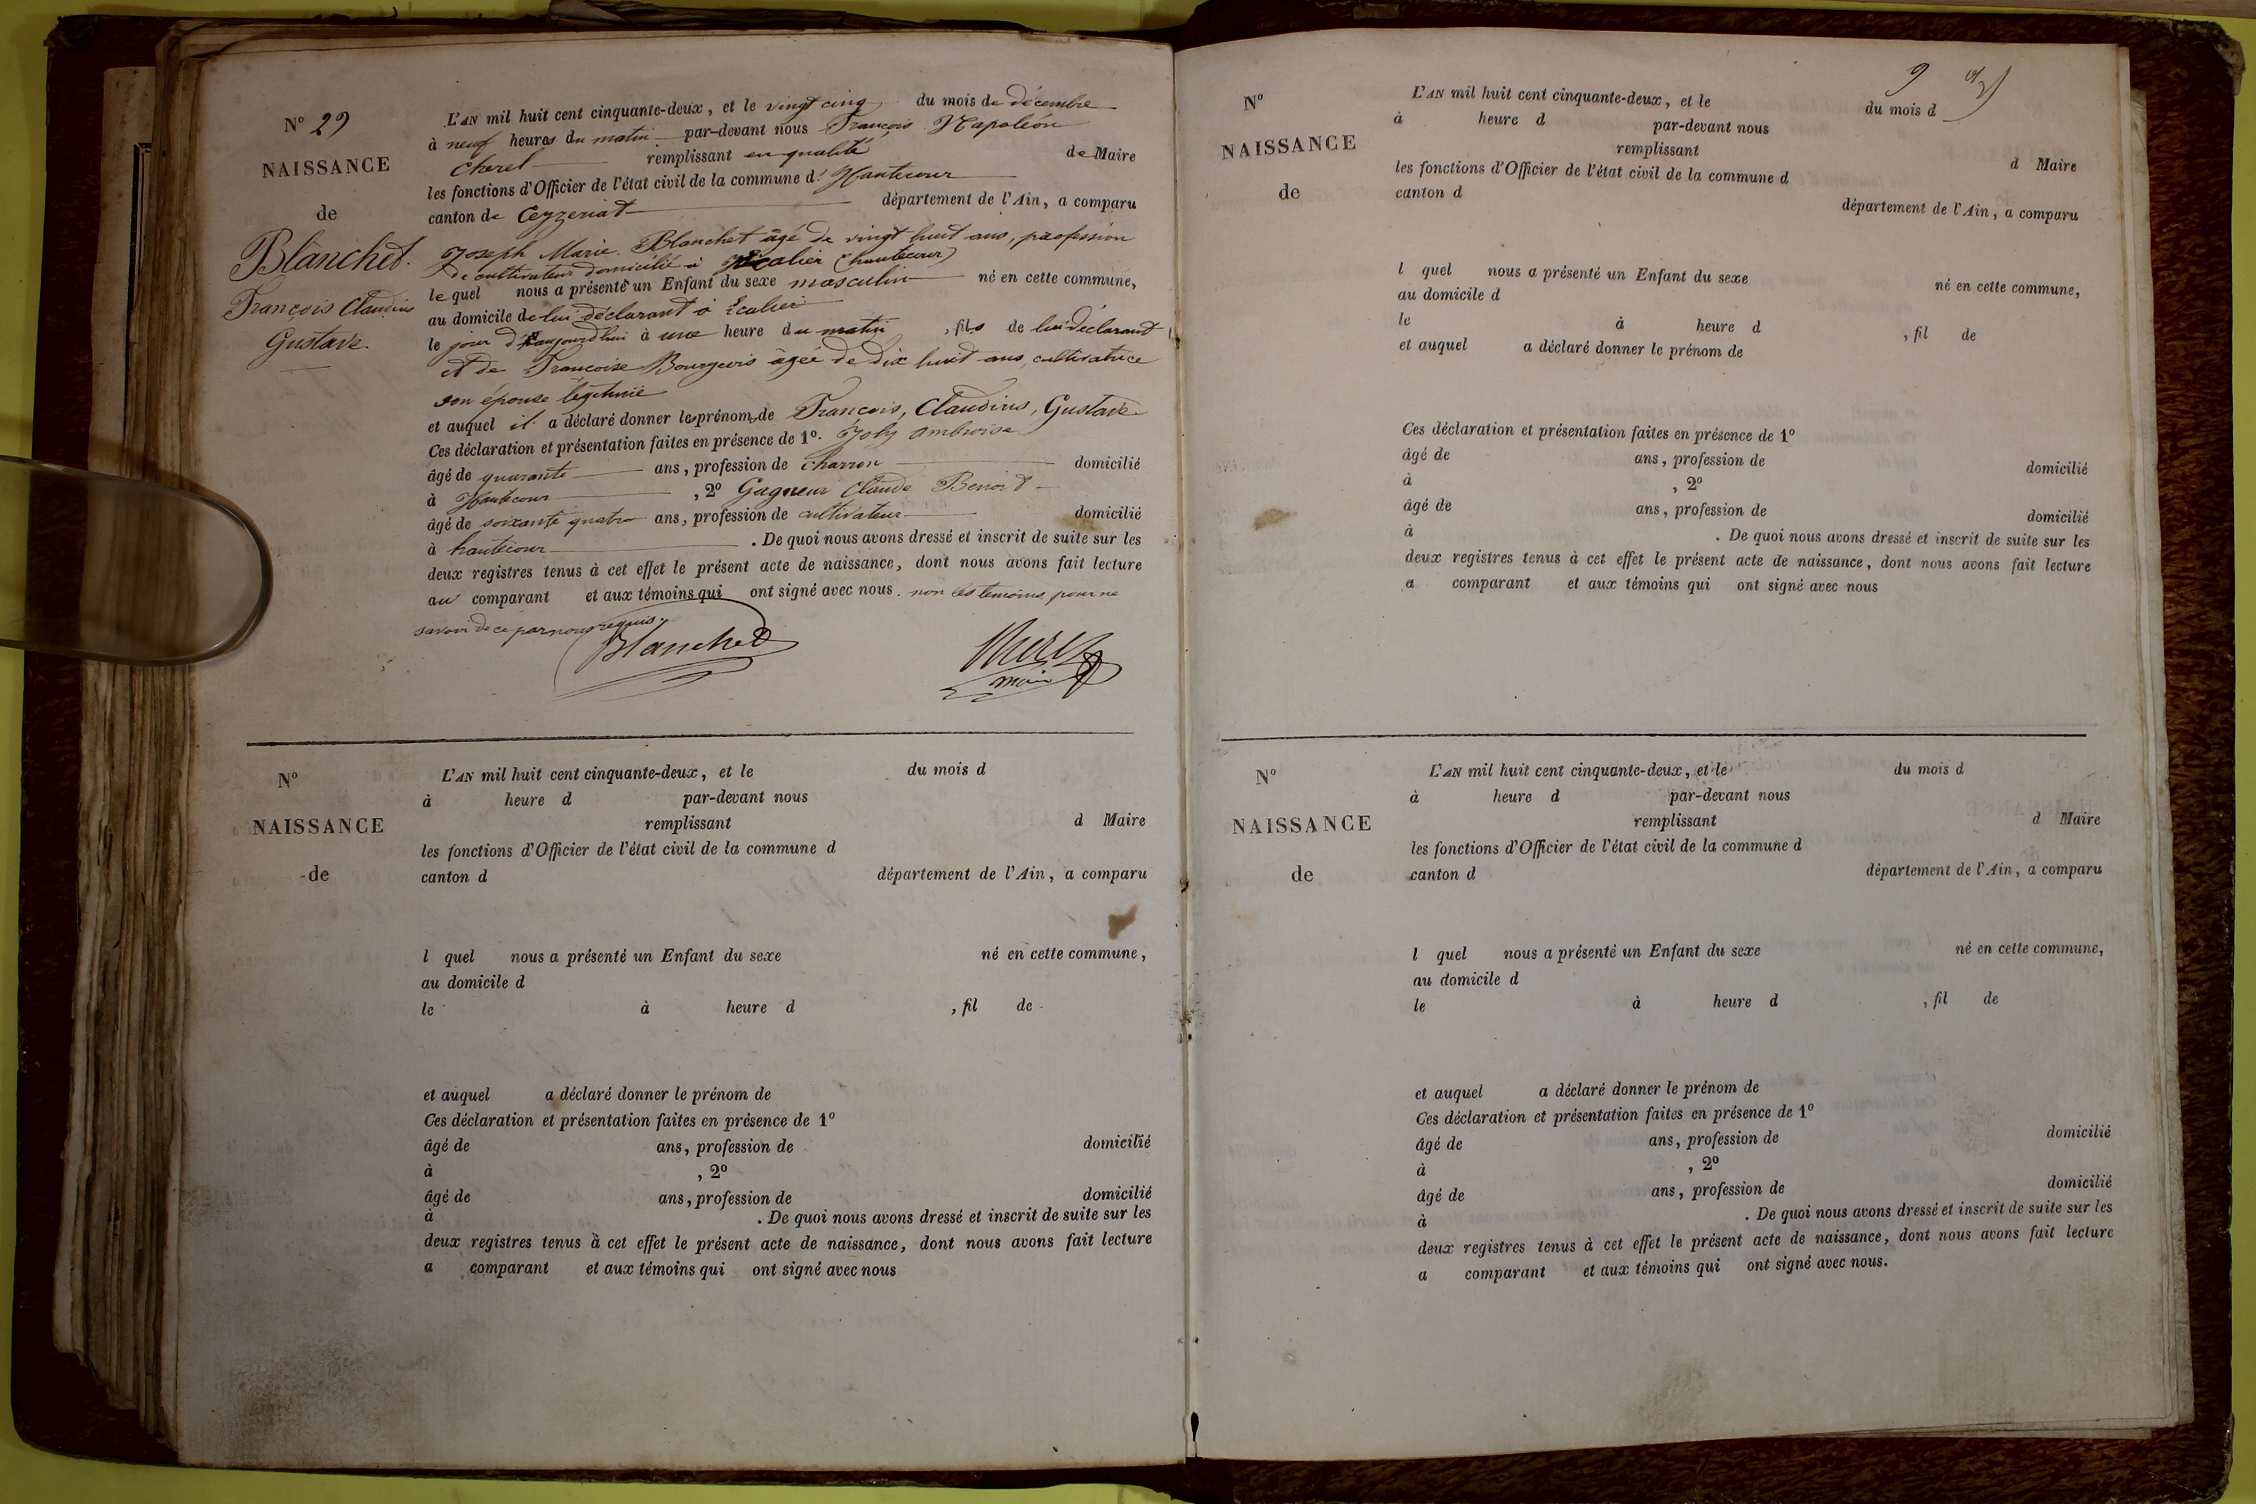 N° 29
NAISSANCE
de
Blanchet.
François Claudius
Gustave.
L'AN mil huit cent cinquante-deux, et le vingt cinq du mois de décembre
à neuf heures du matin par-devant nous François Napoléon
Cherel remplissant en qualité de Maire
les fonctions d'Officier de l'état civil de la commune d' Hautecour
canton de Ceyzeriat département de l'Ain, a comparu
Joseph Marie Blanchet âgé de vingt huit ans, profession
de cultivateur domicilié à (hautecour)
lequel nous a présenté un Enfant du sexe masculin né en cette commune,
au domicile de lui déclarant à
le jour d'aujourdhui à une heure du matin, fils de lui déclarant
et de Francoise Bourgeois âgée de dix huit ans, cultivatrice
son épouse légitime
et auquel il a déclaré donner les prénoms de François, Claudius, Gustave
Ces déclaration et présentation faites en présence de 1°. Joly ambroise
âgé de quarante ans, profession de charron domicilié
à Hautecour, 2° Gagneur Claude Benoit
âgé de soixante quatre ans, profession de cultivateur domicilié
à hautecour. De quoi nous avons dressé et inscrit de suite sur les
deux registres tenus à cet effet le présent acte de naissance, dont nous avons fait lecture
au comparant et aux témoins qui ont signé avec nous. non les temoins pour ne
savoir de ce par nous requis.
Blanchet
maire
N°
NAISSANCE
de
L'AN mil huit cent cinquante-deux, et le du mois d
à heure d par-devant nous
remplissant d Maire
les fonctions d'Officier de l'état civil de la commune d
canton d département de l'Ain, a comparu
l quel nous a présenté un Enfant du sexe né en cette commune,
au domicile d
le à heure d , fil de
et auquel a déclaré donner le prénom de
Ces déclaration et présentation faites en présence de 1°
âgé de ans, profession de domicilié
à , 2°
âgé de ans, profession de domicilié
à . De quoi nous avons dressé et inscrit de suite sur les
deux registres tenus à cet effet le présent acte de naissance, dont nous avons fait lecture
a comparant et aux témoins qui ont signé avec nous
N°
NAISSANCE
de
L'AN mil huit cent cinquante-deux, et le du mois d
à heure d par-devant nous
remplissant d Maire
les fonctions d'Officier de l'état civil de la commune d
canton d département de l'Ain, a comparu
l quel nous a présenté un Enfant du sexe né en cette commune,
au domicile d
le à heure d , fil de
et auquel a déclaré donner le prénom de
Ces déclaration et présentation faites en présence de 1°
âgé de ans, profession de domicilié
à , 2°
âgé de ans, profession de domicilié
à . De quoi nous avons dressé et inscrit de suite sur les
deux registres tenus à cet effet le présent acte de naissance, dont nous avons fait lecture
a comparant et aux témoins qui ont signé avec nous
N°
NAISSANCE
de
L'AN mil huit cent cinquante-deux, et le du mois d
à heure d par-devant nous
remplissant d Maire
les fonctions d'Officier de l'état civil de la commune d
canton d département de l'Ain, a comparu
l quel nous a présenté un Enfant du sexe né en cette commune,
au domicile d
le à heure d , fil de
et auquel a déclaré donner le prénom de
Ces déclaration et présentation faites en présence de 1°
âgé de ans, profession de domicilié
à , 2°
âgé de ans, profession de domicilié
à . De quoi nous avons dressé et inscrit de suite sur les
deux registres tenus à cet effet le présent acte de naissance, dont nous avons fait lecture
a comparant et aux témoins qui ont signé avec nous.